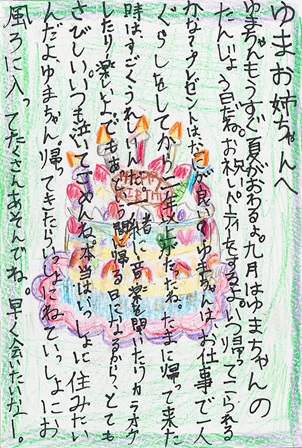 ゆまお姉さんへ
ゆまちゃんもうすぐ夏がおわるよ。九月はゆまちゃんの
たんじょう日だね。お祝いパーティをするよ。いつ帰ってこられる
かな?プレゼントは、なにが良い?ゆまちゃんは、お仕事で一人
ぐらしをしてから一年はたったね。たまに帰って来た
時は、すごくうれしいんだ。一緒に音楽を聞いたりカラオケ
したり楽しいよ。でもあという間に帰る日になるから、とても
さびしい。いつも泣いてごめんね。本当はいっしょに住みたい
んだよ。ゆまちゃん帰ってきたらいっしょにねていっしょにお
風ろに入ってたくさんあそんでね。早く会いたいなー。